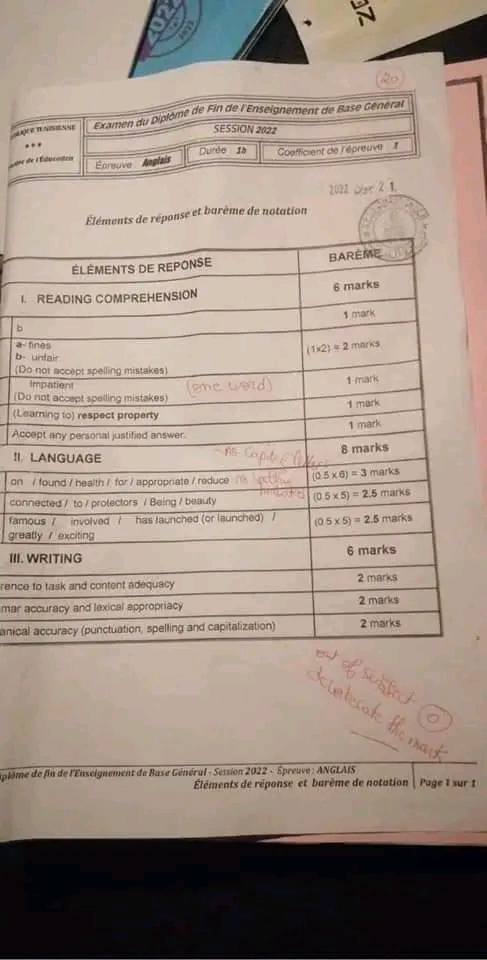 2022
2022
20
Examen du Diplôme de Fin de l'Enseignement de Base Général
SESSION 2022
TUNISIENNE
***
de l'Éducation
Épreuve : Anglais
Durée : 1h
Coefficient de l'épreuve : 1
2022 21
Éléments de réponse et barème de notation
ÉLÉMENTS DE REPONSE
BARÈME
I. READING COMPREHENSION
6 marks
b
1 mark
a- fines
b- unfair
(Do not accept spelling mistakes)
(1x2) = 2 marks
Impatient
(one word)
(Do not accept spelling mistakes)
1 mark
(Learning to) respect property
1 mark
Accept any personal justified answer.
1 mark
II. LANGUAGE
- no capital letters
8 marks
on / found / health / for / appropriate / reduce
no spelling mistakes
(0.5 x 6) = 3 marks
connected / to / protectors / Being / beauty
(0.5 x 5) = 2.5 marks
famous / involved / has launched (or launched) /
greatly / exciting
(0.5 x 5) = 2.5 marks
III. WRITING
6 marks
rence to task and content adequacy
2 marks
mar accuracy and lexical appropriacy
2 marks
anical accuracy (punctuation, spelling and capitalization)
2 marks
out of subject 0
the mark
iplôme de fin de l'Enseignement de Base Général - Session 2022 - Épreuve : ANGLAIS
Éléments de réponse et barème de notation
Page 1 sur 1